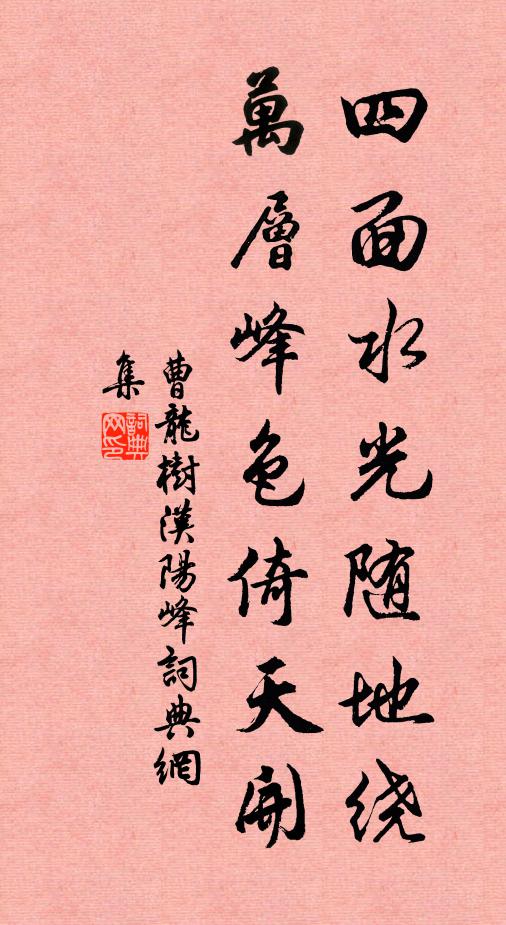 四面水光随地绕
萬層峰色倚天開
曹龍樹漢陽峰詞典網
集
詞典
网印